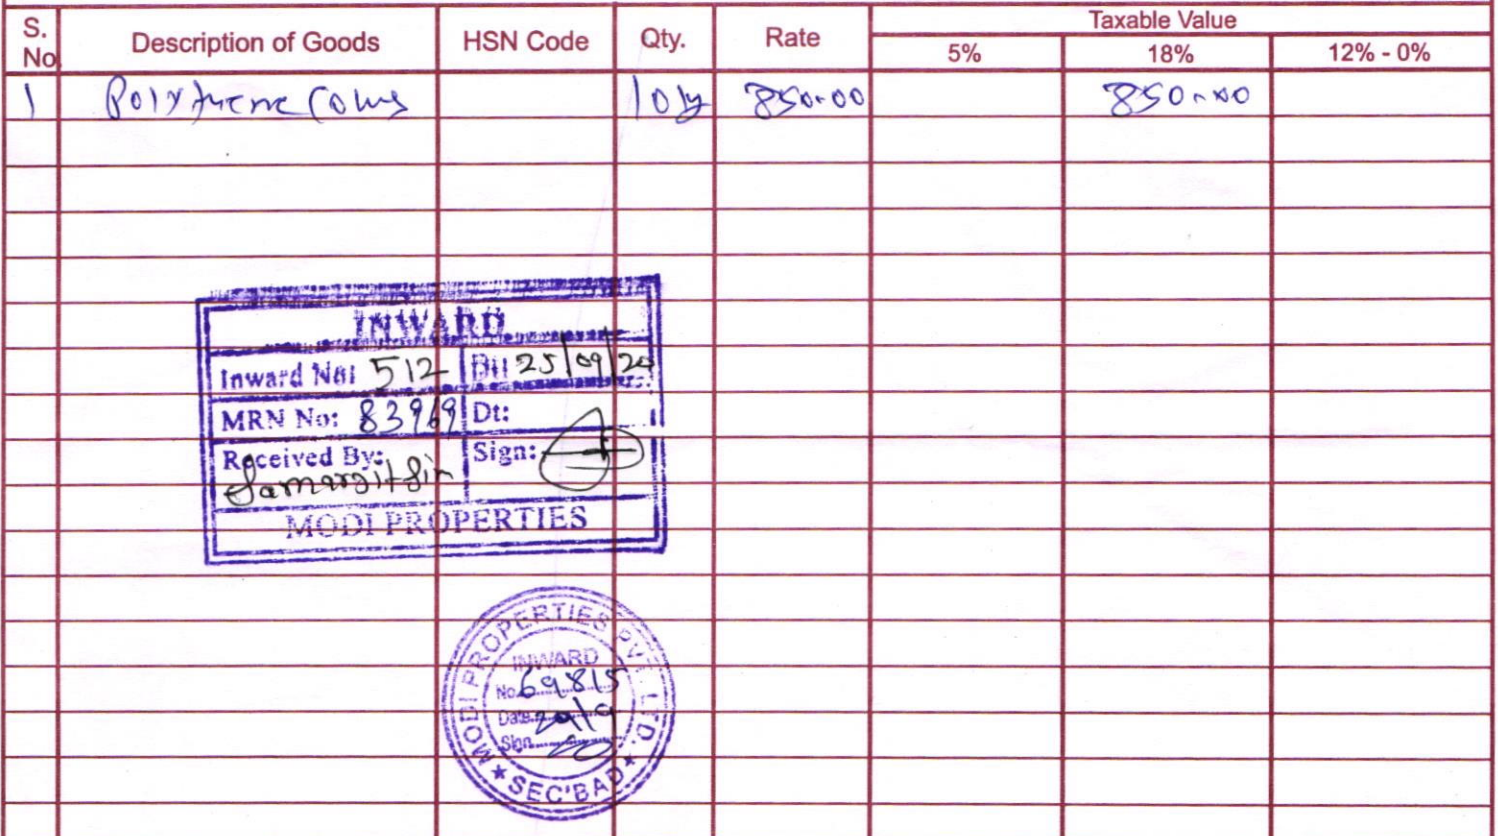 S. No Description of Goods HSN Code Qty. Rate Taxable Value
5% 18% 12% - 0%
1 Polythene Covers 850.00 850.00
INWARD
Inward No: 512 Dt: 25/09/20
MRN No: 83969 Dt:
Received By: Sign:
MODI PROPERTIES
MODI PROPERTIES PVT. LTD.
INWARD
No. 69815
Date
Sign
★ SEC'BAD ★